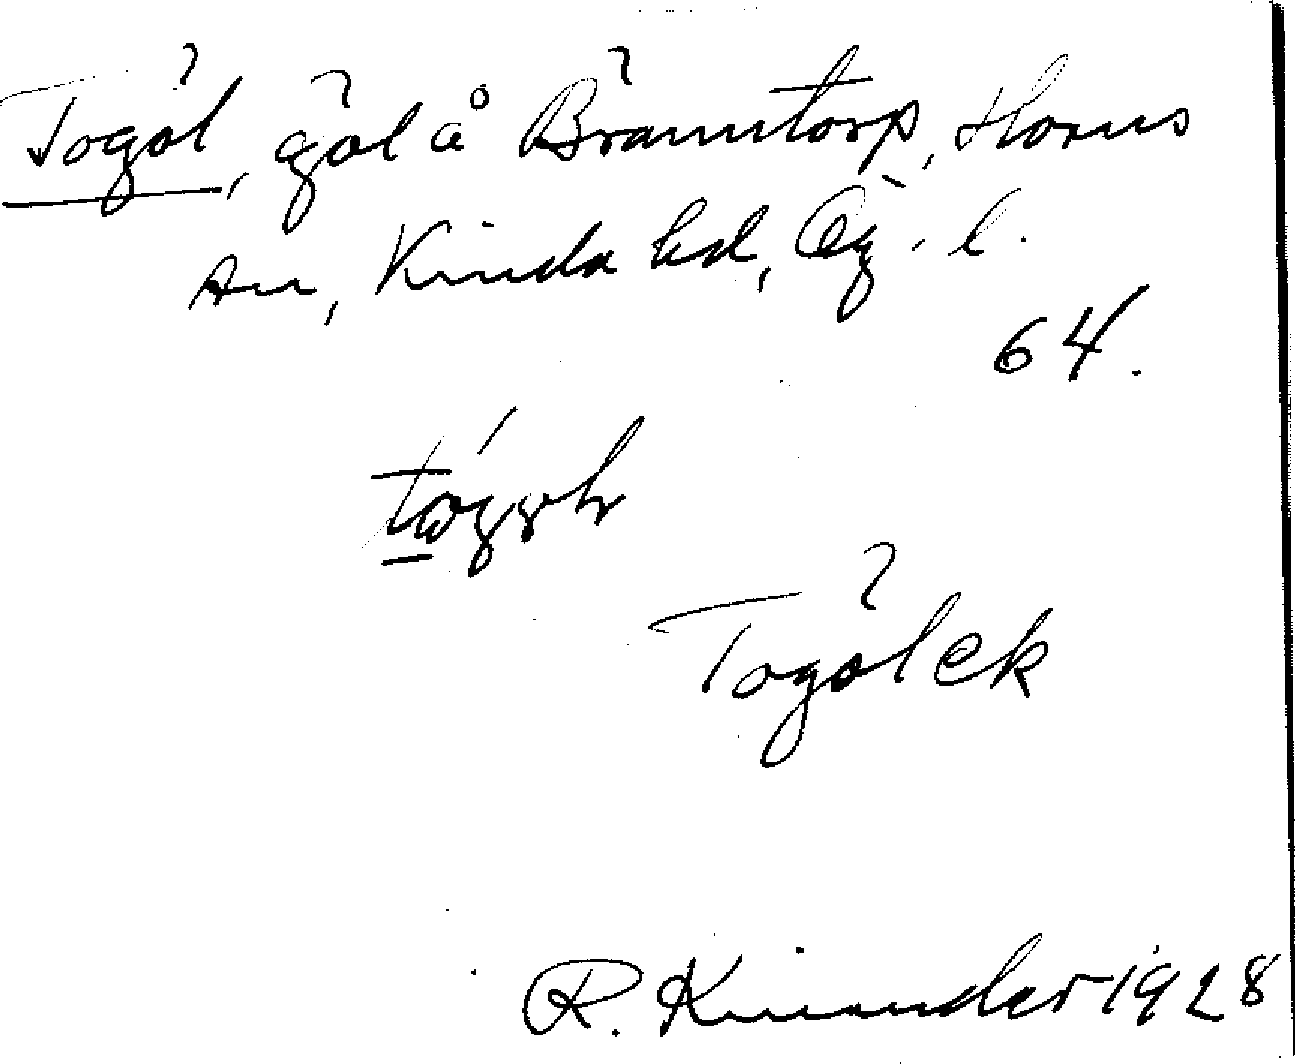 Togöl, göl å Bränntorp, Horns
sn, Kinda hd, Ög. l.
64.
Togölek
R. Kinander 1928